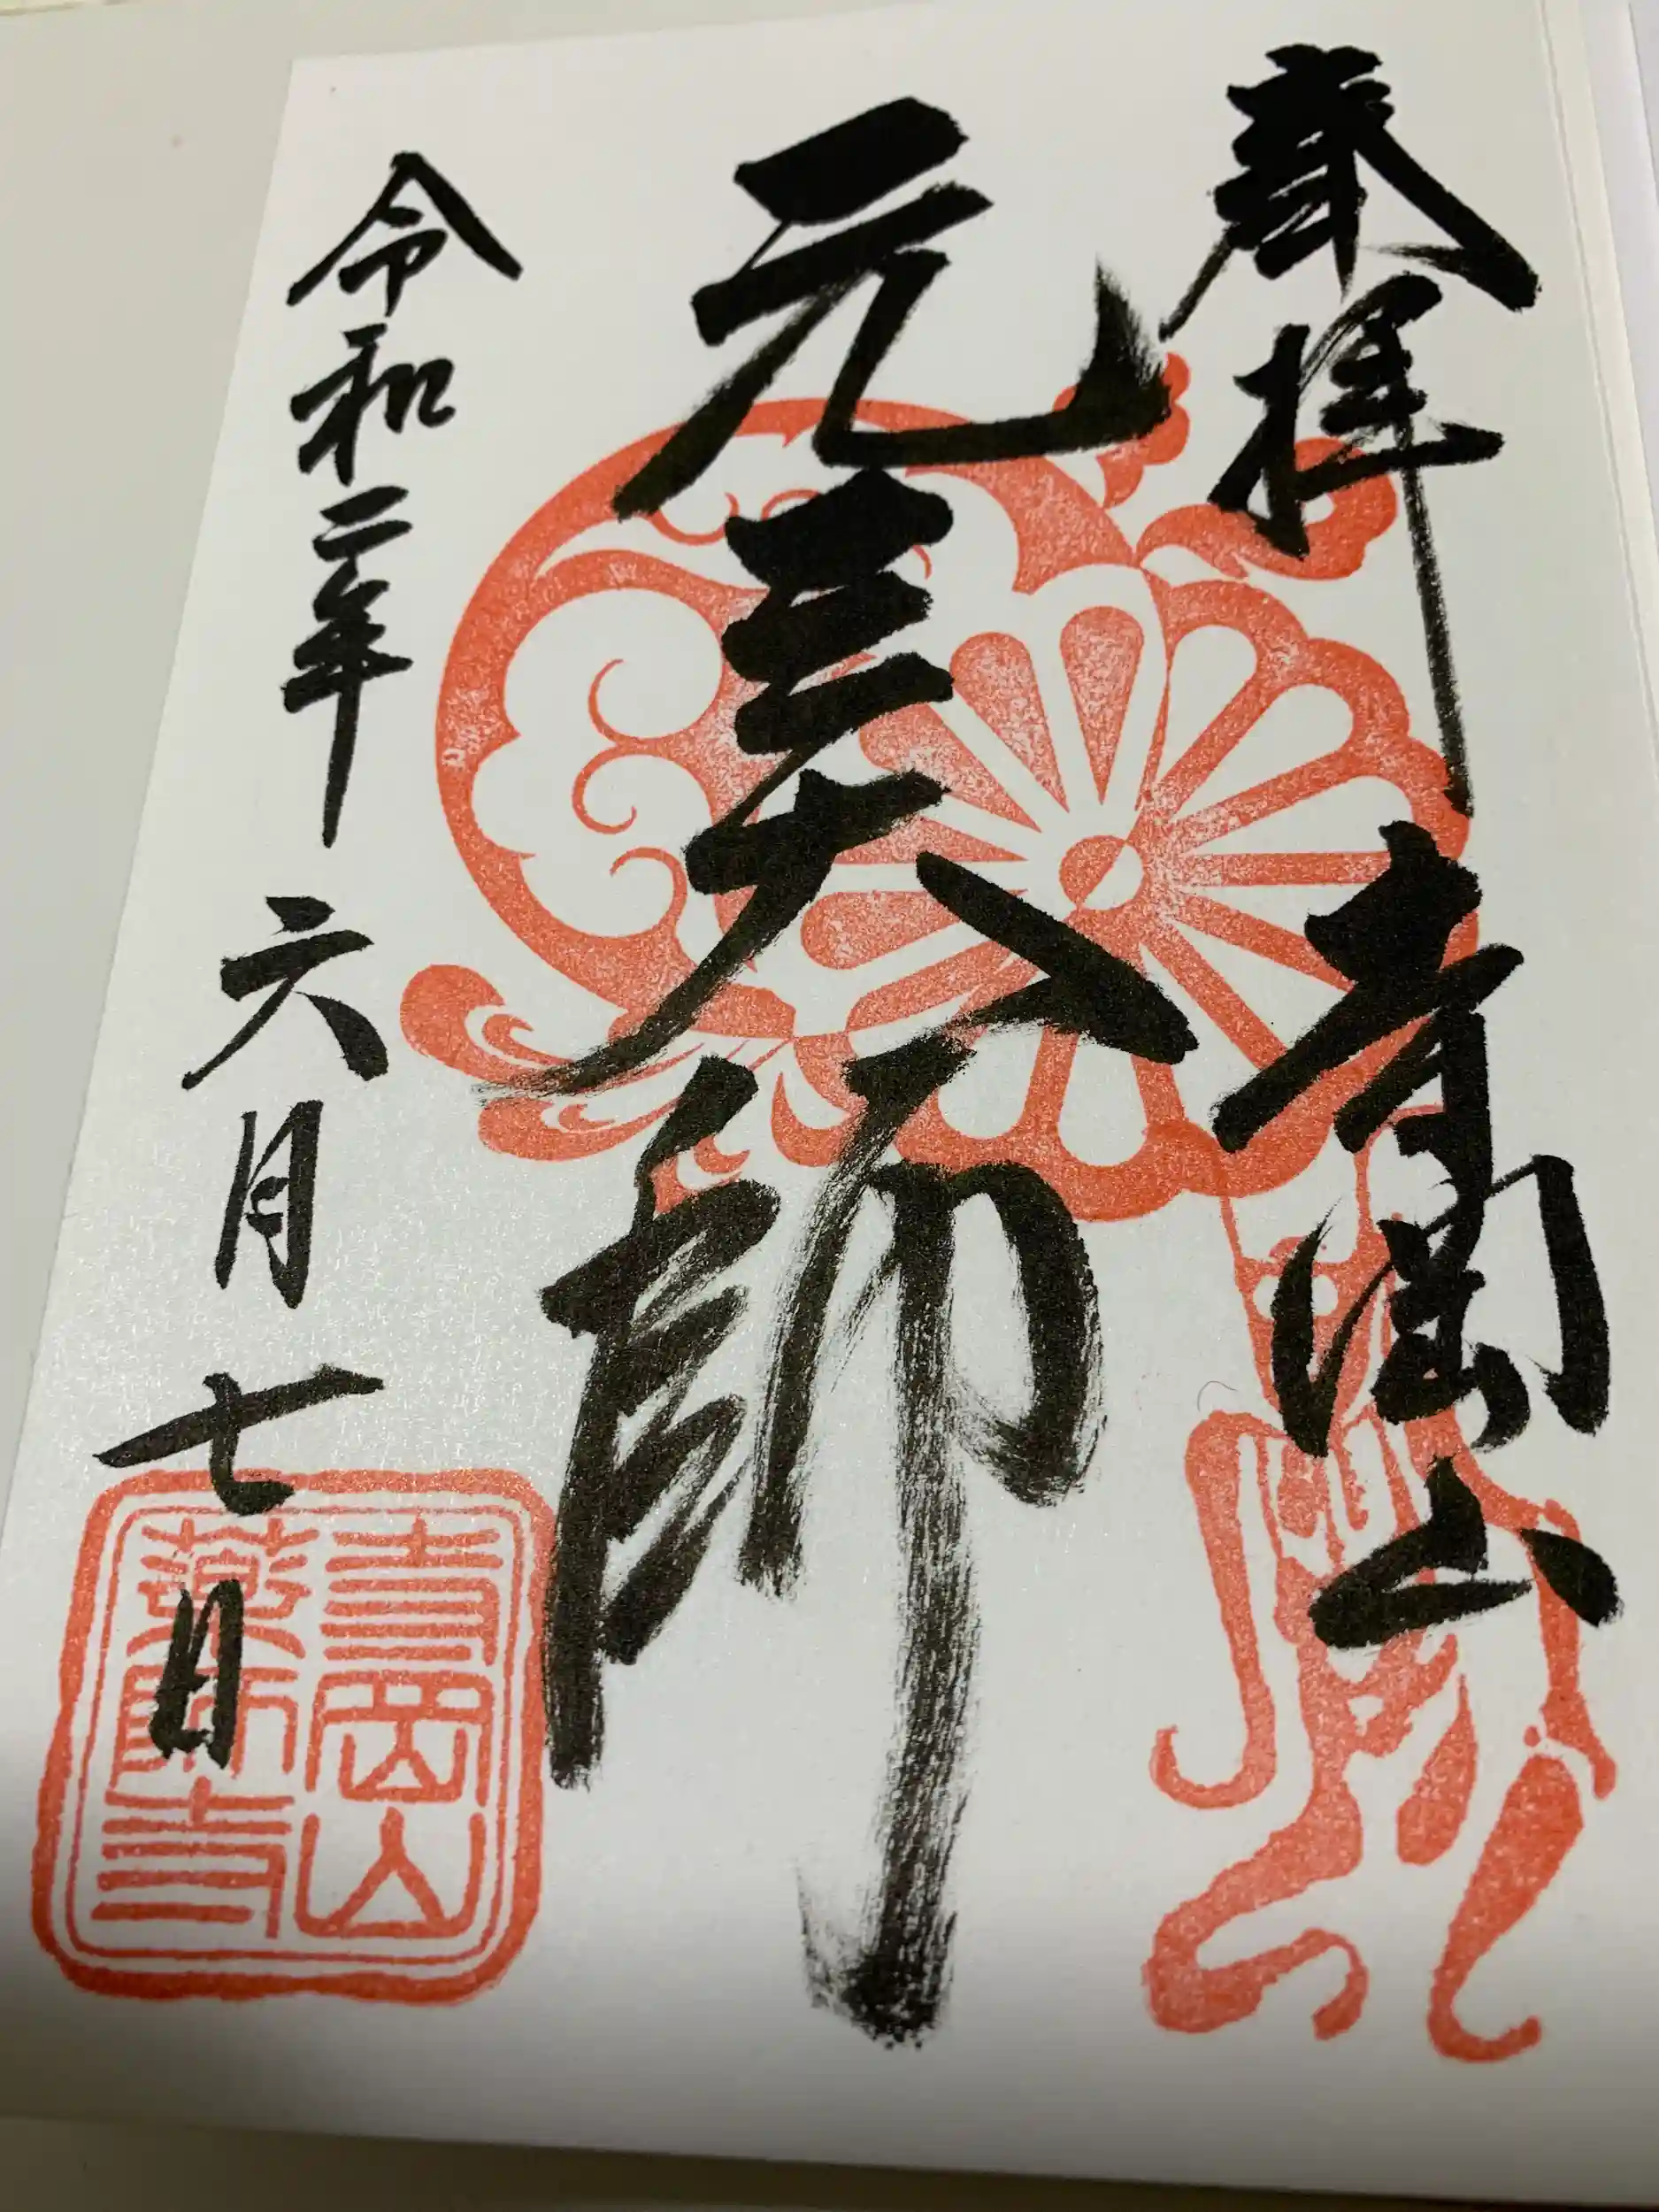 奉拝 寺岡山
元三大師
令和二年 六月 七日
寺岡山
薬師寺